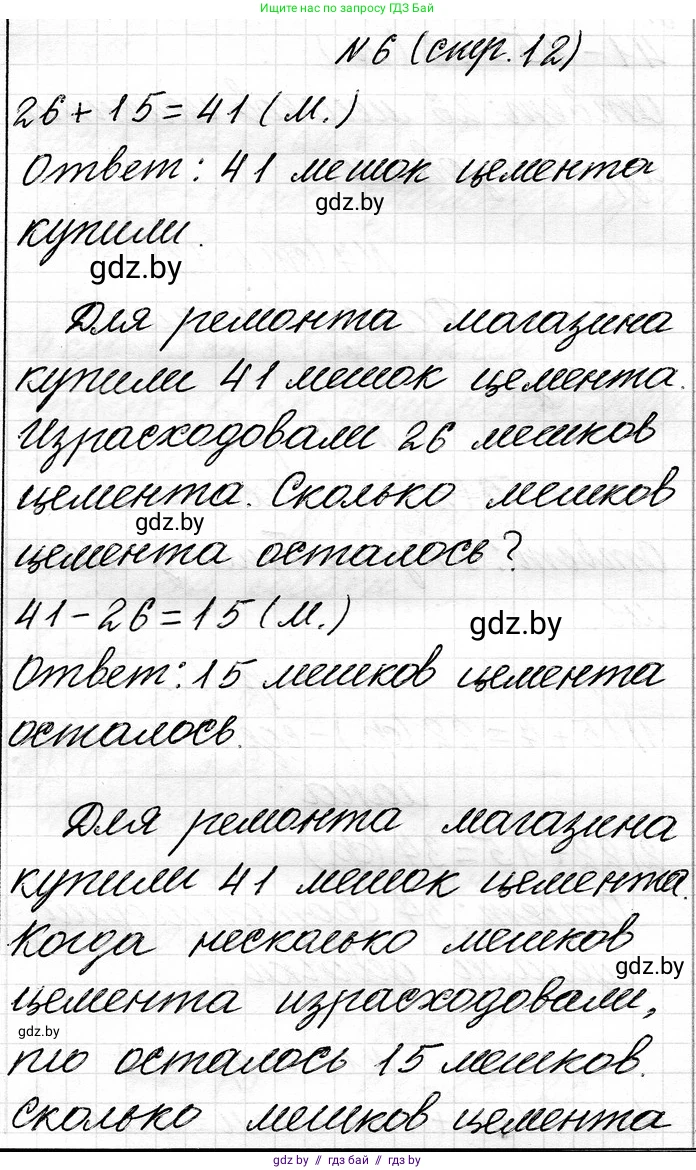 Ищите нас на просторах GDZ.BY
Ищите по запросу ГДЗ Бай
№6 (стр.12)
26+15=41(м.)
Ответ: 41 мешок цемента
gdz.by
купили.
gdz.by
Для ремонта магазина
купили 41 мешок цемента.
Израсходовали 26 мешков
цемента. Сколько мешков
gdz.by
цемента осталось?
41-26=15(м.)
gdz.by
Ответ: 15 мешков цемента
осталось.
Для ремонта магазина
купили 41 мешок цемента.
Когда несколько мешков
gdz.by
цемента израсходовали,
gdz.by
то осталось 15 мешков.
Сколько мешков цемента
gdz.by // гдз бай // гдз by